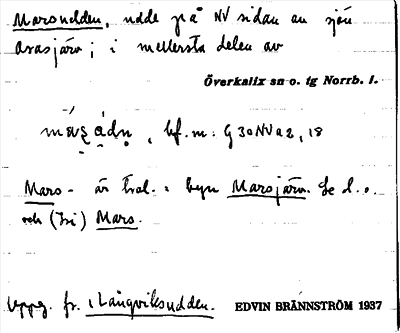 Marsudden, udde på NV sidan av sjön
Årasjärv; i mellersta delen av
Överkalix sn o. tg Norrb. l.
bf. m: G 30 NV a 2, 18
Mars- är trol. = byn Marsjärv. Se d. o.
och (Tri) Mars.
Uppg. fr. Långviksudden. EDVIN BRÄNNSTRÖM 1937